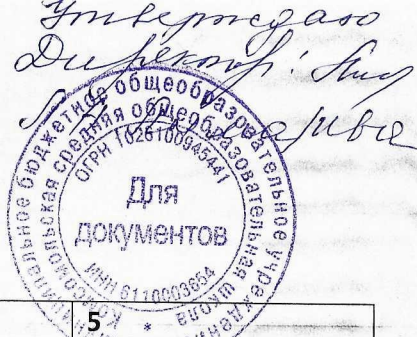 Утверждаю
Директор
муниципальное бюджетное общеобразовательное учреждение
Комсомольская средняя общеобразовательная школа
ОГРН 1026100945441
Для
документов
ИНН 6110003654
5
*